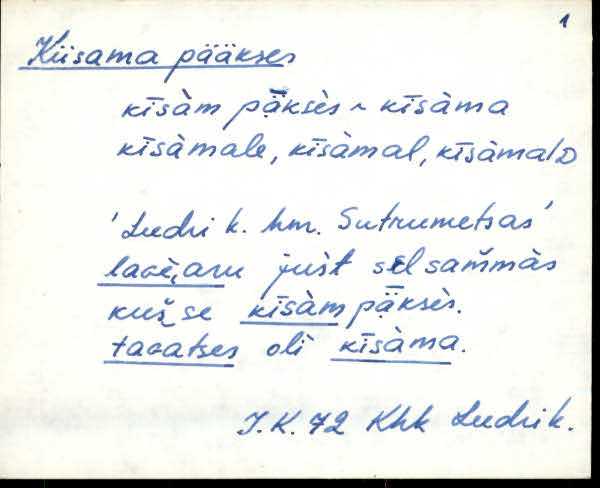 1
Kiisama pääkses
kīsàm pǟksès ~ kīsàma
kīsàmale, kīsàmal, kīsàmalD
'Ludri k. hm. Sutrumetsas'
just sel sam̆màs
se kīsàm pǟksès.
oli kīsàma.
J.K. 72 Khk Ludri k.